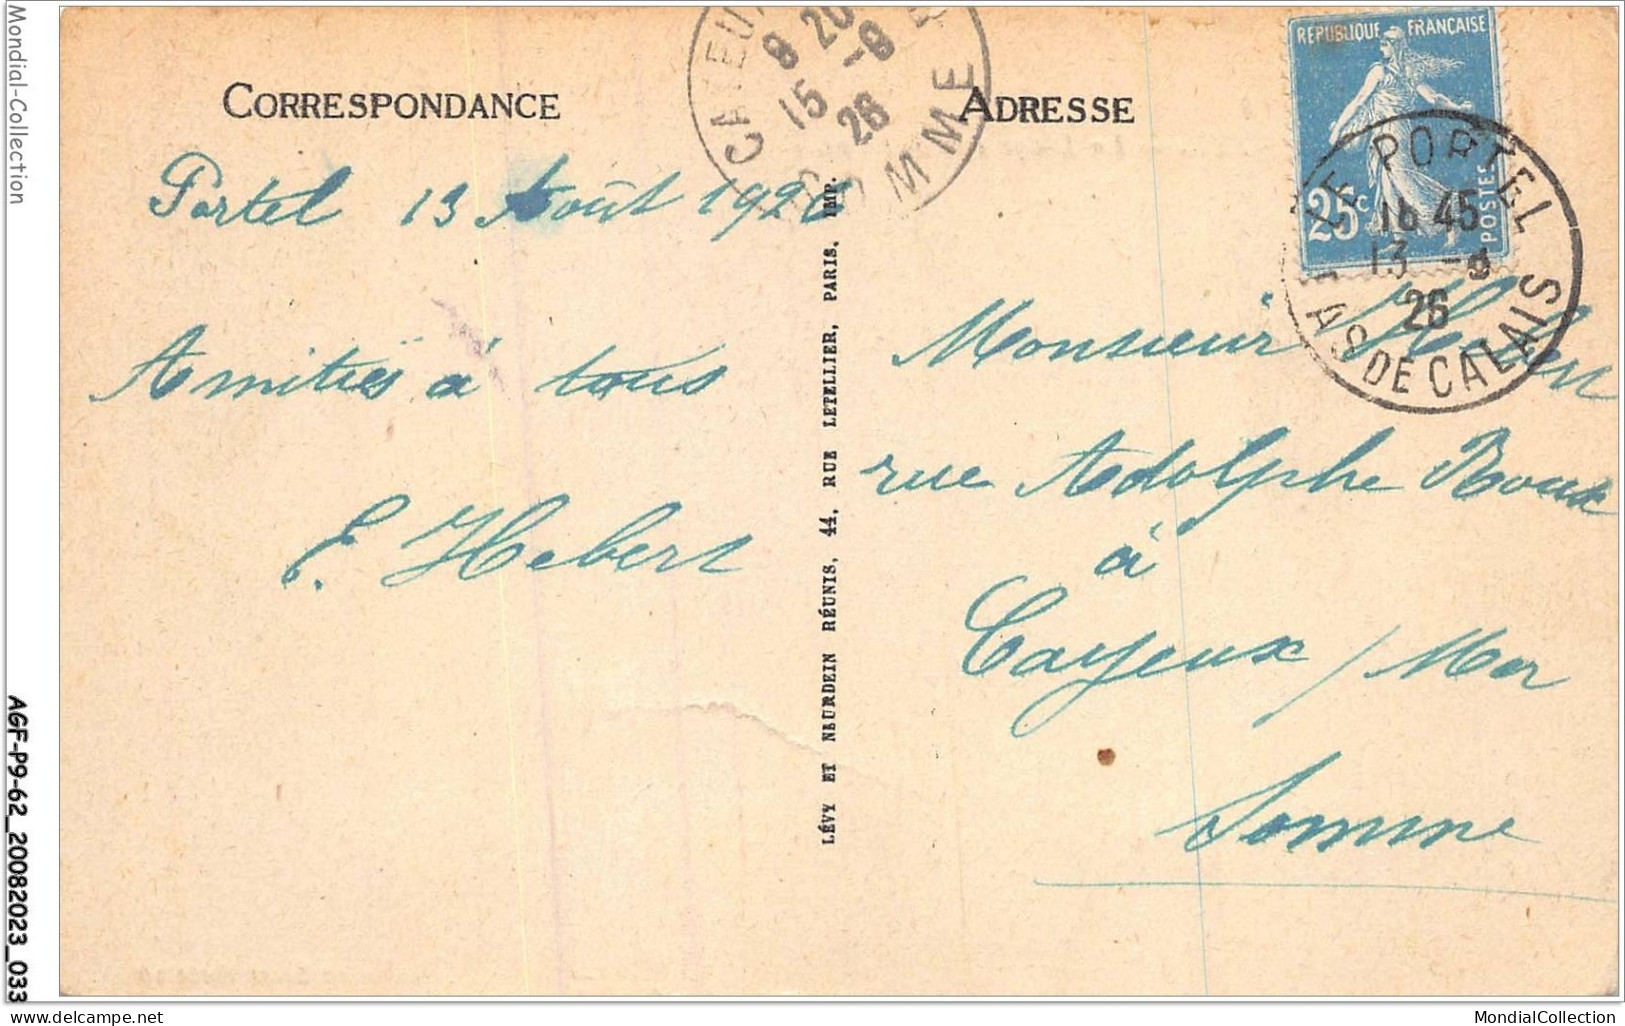 CORRESPONDANCE
Portel 13 Août 1926
Amitiés à tous
E. Hebert
LÉVY ET NEURDEIN RÉUNIS, 44, RUE LETELLIER, PARIS, IMP.
8 20
15 -8
26
ADRESSE
REPUBLIQUE FRANÇAISE
25c
POSTES
LE PORTEL
16 45
13 -8
26
PAS DE CALAIS
Monsieur
rue Adolphe Roux
à
Cayeux / Mer
Somme
Mondial-Collection
AGF-P9-62_20082023_033
www.delcampe.net
MondialCollection